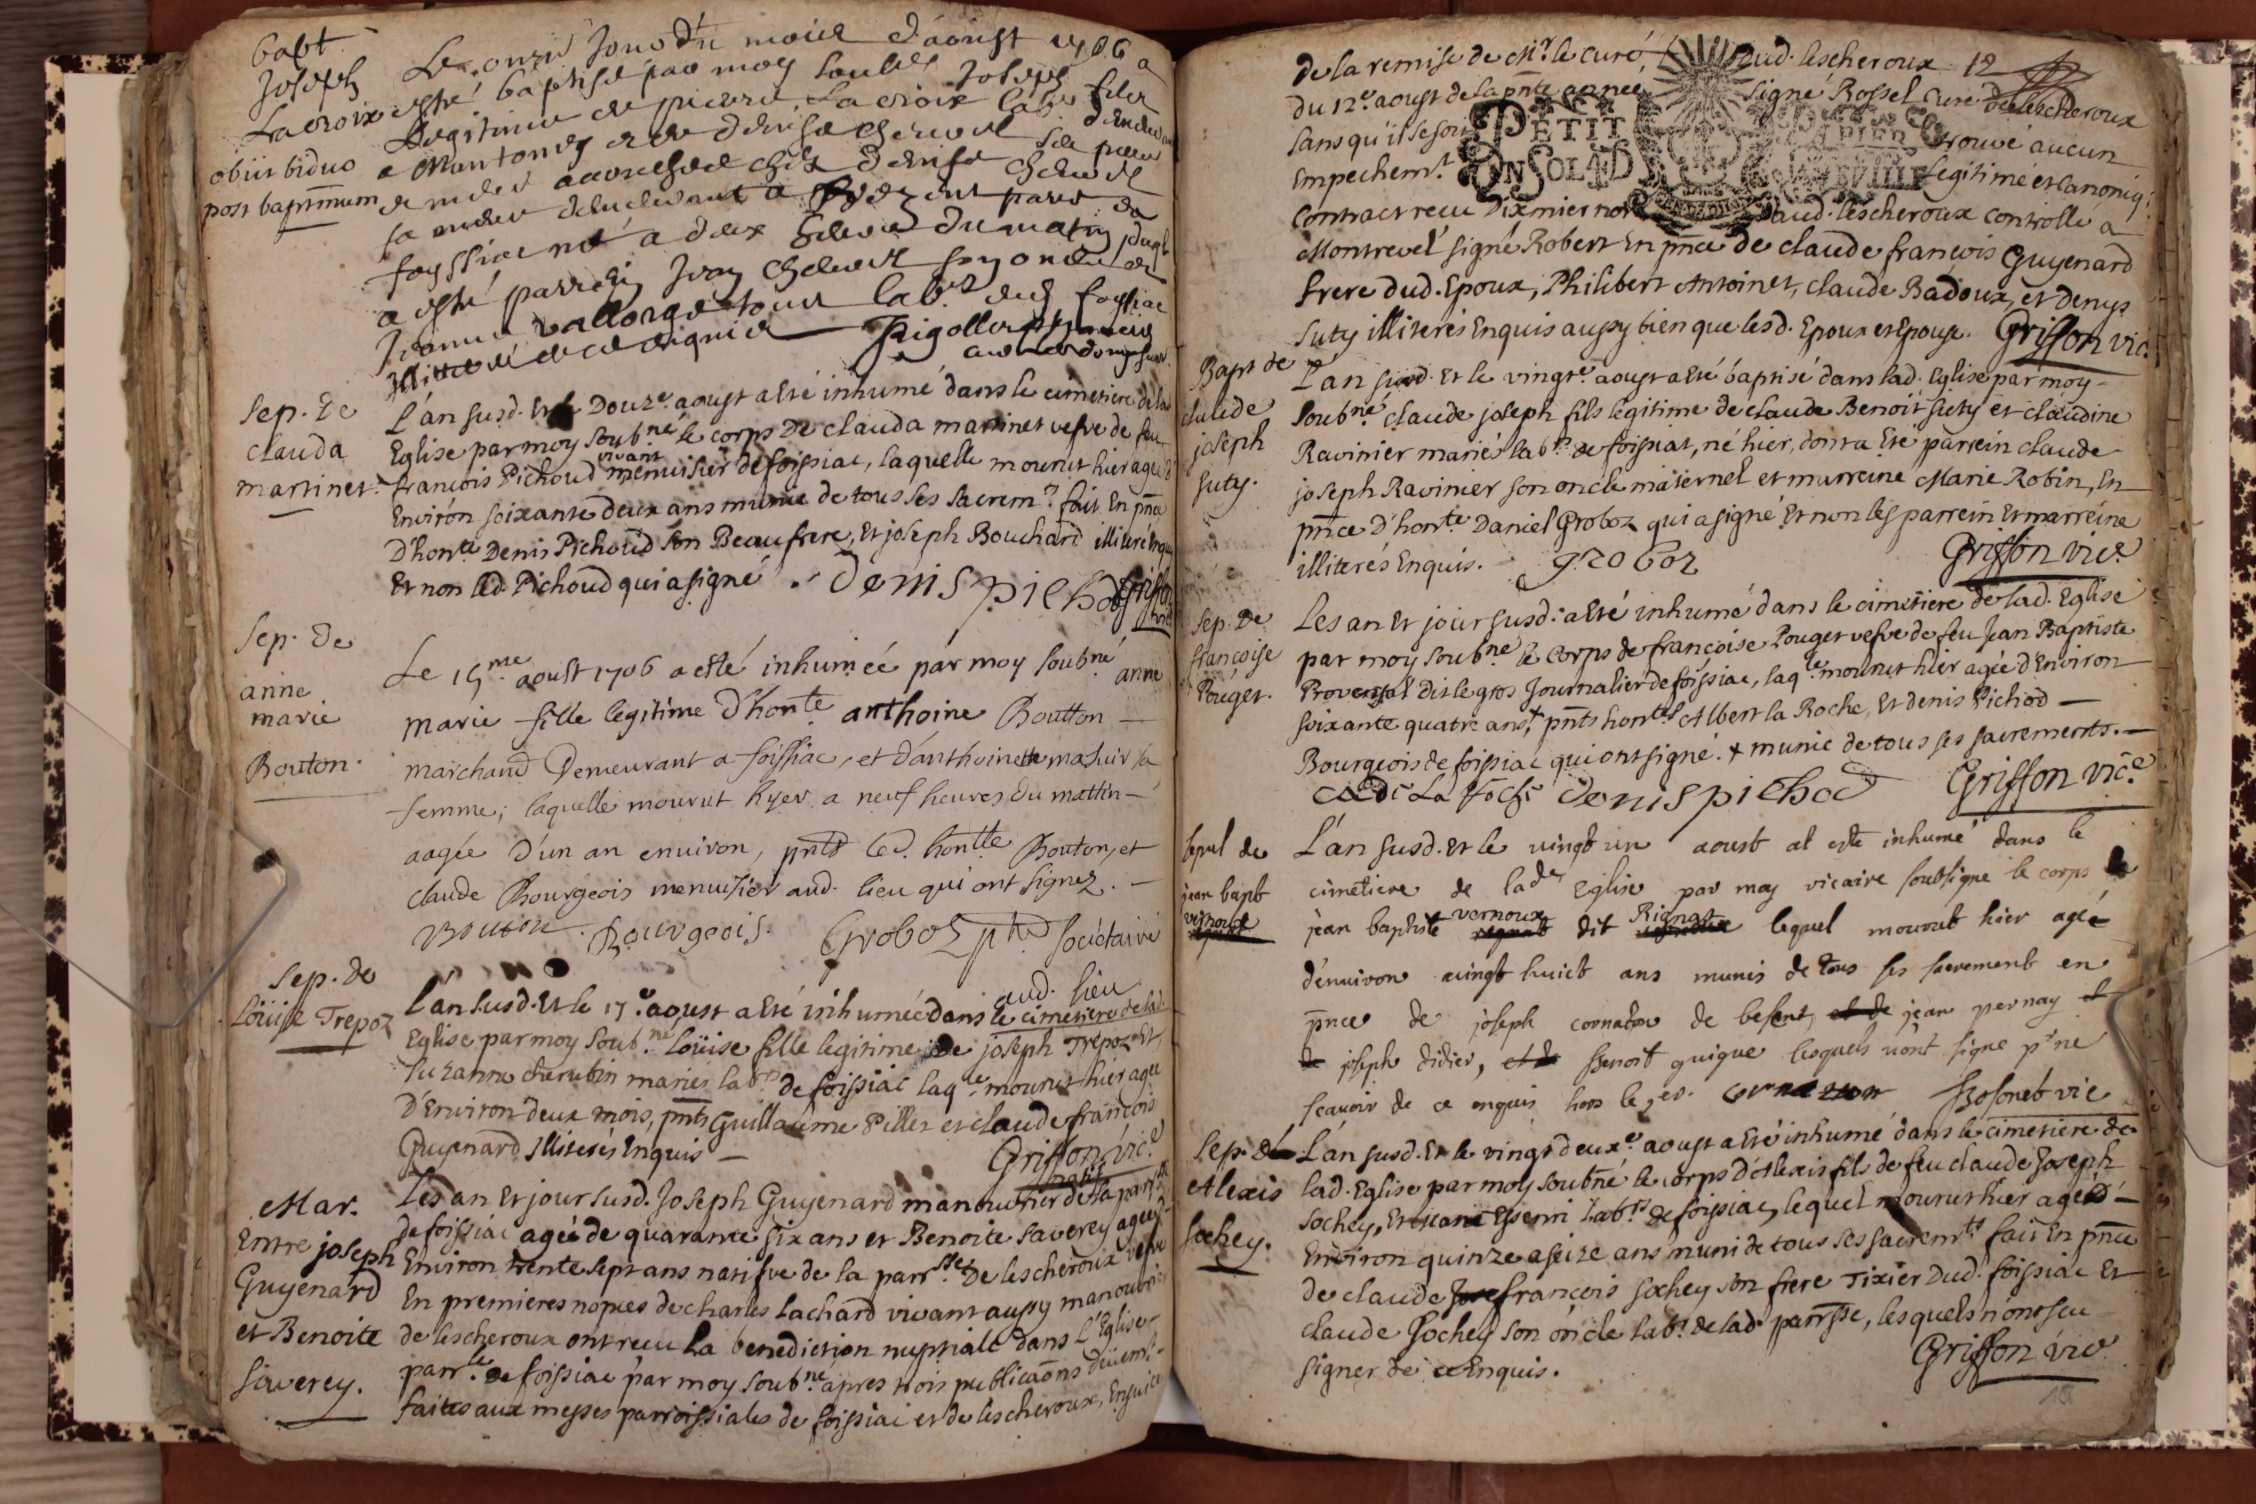 bapt.
Joseph
Lacroix
obiit biduo
post baptm̄um
Le onzie Jour du moid d'aoust 1706 a
esté baptisé par moy soubné Joseph fils
Legitime de pierre Lacroix labr
a Montony et de denise
accouchée chez denise
sa mere
foyssiac né a deux heures du matin
a esté parrein
vallorge labr. dud foyssiac
illitteré de ce enquis Pigollet ptre
Sep. de
clauda
martinet.
L'an susd. et le Douze. aoust a eté inhumé dans le cimetiere de la
Eglise par moy soub.né le corps de clauda martinet vefve de feu
francois Pichoud vivant menuisier de foissiac, laquelle mourut hier agée d
Environ soixante deux ans munie de tous ses sacrem.ts fait En pn̄ce
D'honte Denis Pichoud son Beaufrere, Et joseph Bouchard illiteré enquis
Et non led. Pichoud qui a signé. Denis pichod Griffon
Sep. de
anne
marie
Bouton.
Le 15me aoust 1706 a esté inhumée par moy soubné anne
marie fille legitime d'honte anthoine Boutton
marchand Demeurant a foissiac, et d'anthoinette mashuir sa
femme; laquelle mourut hyer a neuf heures du mattin
aagée d'un an environ, pnts led. honte Bouton, et
claude Bourgeois menuisier aud. lieu qui ont signez.
Bouton. Bourgeois. Groboz ptre societaire
aud. lieu
Sep. de
Loüise Trepoz
L'an susd. Et le 17.e aoust a eté inhumée dans le cimetiere de lad.
Eglise par moy soub.né Loüise fille legitime de joseph Trepoz Et
suzanne cherubin mariés lab.rs de foissiac laqle mourut hier agée
D'Environ deux mois, pnts Guillaume Pillet et claude francois
Guyenard Illiterés Enquis Griffon vic.e
Mar.
Entre joseph
Guyenard
et Benoite
Saverey.
Les an Et jour susd. Joseph Guyenard manouvrier natif de la parrsse
de foissiac agée de quarante six ans et Benoite Saverey agée d'
Environ trente sept ans natifve de la parr.sse De lescheroux vefve
En premieres nopces de charles lachard vivant aussy manouvrier
de lescheroux ont recu la benediction nuptiale dans L'Eglise
parr.le de foissiac par moy soub.né apres trois publicaōns duëment
faites aux messes parroissiales de foissiac et de lescheroux, Ensuite
de la remise de Mr. le curé dud. lescheroux 12
du 12.e aoust de la pnte année signé Rossel curé de lescheroux
sans qu'il se soit trouvé aucun
Empechem.t legitime et canoniq:
PETIT
PAPIER
Contract recu Dixmier not aud. lescheroux controlle a
Montrevel signé Robert En pn̄ce de claude francois Guyenard
frere dud. Epoux, Philibert Antoinet, claude Badoux, et Denys
Suty illiterés Enquis aussy bien que lesd. Epoux et Epouse. Griffon vic.
Bapt de
claude
joseph
Suty.
L'an susd. Et le vingt.e aoust a eté baptisé dans lad. Eglise par moy
Soubné claude joseph fils legitime de claude Benoit Suty et claudine
Ravinier mariés lab.rs de foissiat, né hier, dont a Eté parrein claude
joseph Ravinier son oncle maternel et marreine Marie Robin, En
pn̄ce d'honte. Daniel Groboz qui a signé Et non les parrein Et marreine
illiterés Enquis. groboz Griffon vic.e
Sep. De
francoise
Pouget.
Les an Et jour susd. a eté inhumé dans le cimetiere de lad. Eglise
par moy soubné le corps de françoise Pouget vefve de feu Jean Baptiste
Provensal dit le gros journalier de foissiac, laq.le mourut hier agée d'Environ
soixante quatre ans+ pnts hontes Albert la Roche, Et denis Pichod
Bourgeois de foissiac qui ont signé. + munie de tous ses sacrements.
De La Roche Denis pichod Griffon vic.e
Sepul de
jean bapt
vernoux
L'an susd. et le vingt un aoust at esté inhumé dans le
cimetiere de lade Eglise par moy vicaire soubsigné le corps de
jean baptiste vernoux dit Rignat lequel mourut hier agé
d'environ vingt huict ans munis de tous ses sacrement en
pn̄ce de joseph cornaton de besent, et de jean pernay et
de joseph didier, et de Benoit guigue lesquels n'ont signé pr ne
scavoir de ce enquis hors le 1er. cornaton Bosonet vic
Sep. de
Alexis
Sochey.
L'an susd. Et le vingt deux.e aoust a eté inhumé dans le cimetiere de
lad. Eglise par moy soubné le corps d'Alexis fils de feu claude Joseph
Sochey, Et Lab.rs de foissiac, lequel mourut hier agé d'
Environ quinze a seize ans muni de tous ses sacremts fait En pn̄ce
de claude francois Sochey son frere Tixier dud. foissiac Et
claude Sochey son oncle lab.r de lad. parrsse, lesquels n'ont scu
signer de ce Enquis. Griffon vic